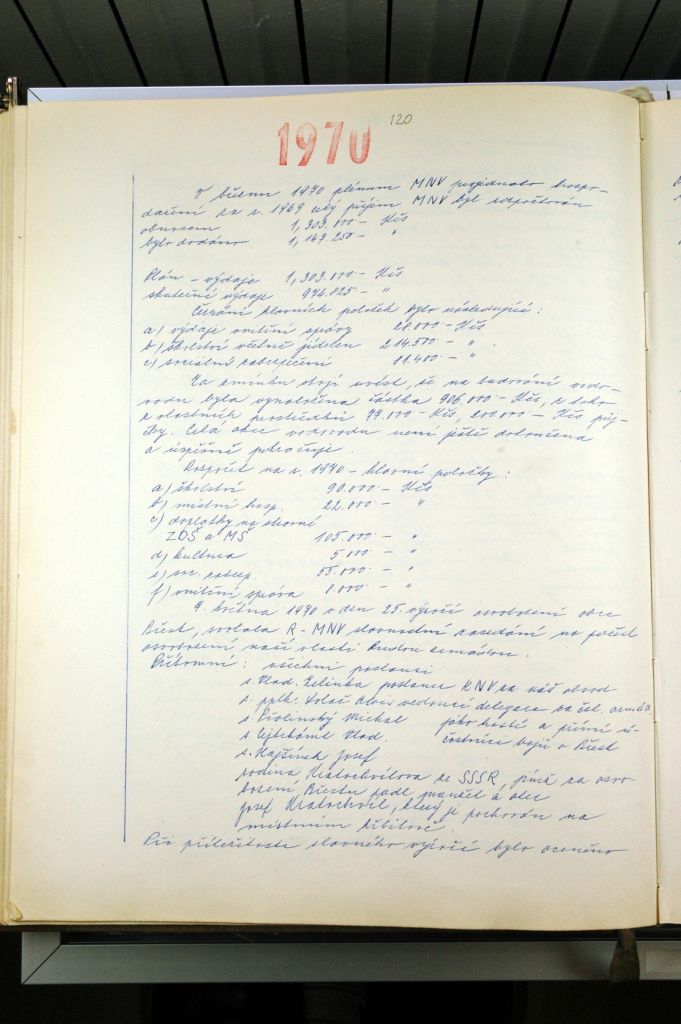 120
1970
V březnu 1970 plénum MNV projednalo hospo-
daření za r. 1969 celý příjem MNV byl rozpočtován
obnosem 1,303.000 - Kčs
bylo dodáno 1,147.250 - "
Plán - výdaje 1,303.000 - Kčs
skutečné výdaje 974.825 - "
Čerpání hlavních položek bylo následující :
a) výdaje vnitřní správy 28.000 - Kčs
b) školství včetně jídelen 214.500 - "
c) sociální zabezpečení 11.400 - "
Za zmínku stojí uvést, že na budování vodo-
vodu byla vynaložena částka 906.000 - Kčs, z toho
z vlastních prostředků 44.000 - Kčs, 200.000 - Kčs půj-
čky. Celá akce vodovodu není ještě dokončena
a úspěšně pokračuje.
Rozpočet na r. 1970 - hlavní položky :
a) školství 90.000 - Kčs
b) místní hosp. 22.000 - "
c) doplatky na sborné
ZDŠ a MŠ 105.000 - "
d) kultura 5.000 - "
e) soc. zabezp. 55.000 - "
f) vnitřní správa 8.000 - "
9. května 1970 v den 25. výročí osvobození obce
Břest, svolala R - MNV slavnostní zasedání na počest
osvobození naší vlasti Rudou armádou.
Přítomni : všichni poslanci
s. Vlad. Zelinka poslanec KNV za náš obvod
s. pplk. Alois vedoucí delegace za čsl. armádu
s. Michal jako hosté a přímí ú-
s. Vlad. častníci bojů o Břest
s. Hajšinek Josef
rodina Kratochvílova ze SSSR, jímž za osvo-
bození Břestu padl manžel a otec
Josef Kratochvíl, který je pochován na
místním hřbitově.
Při příležitosti slavného výročí bylo oceněno